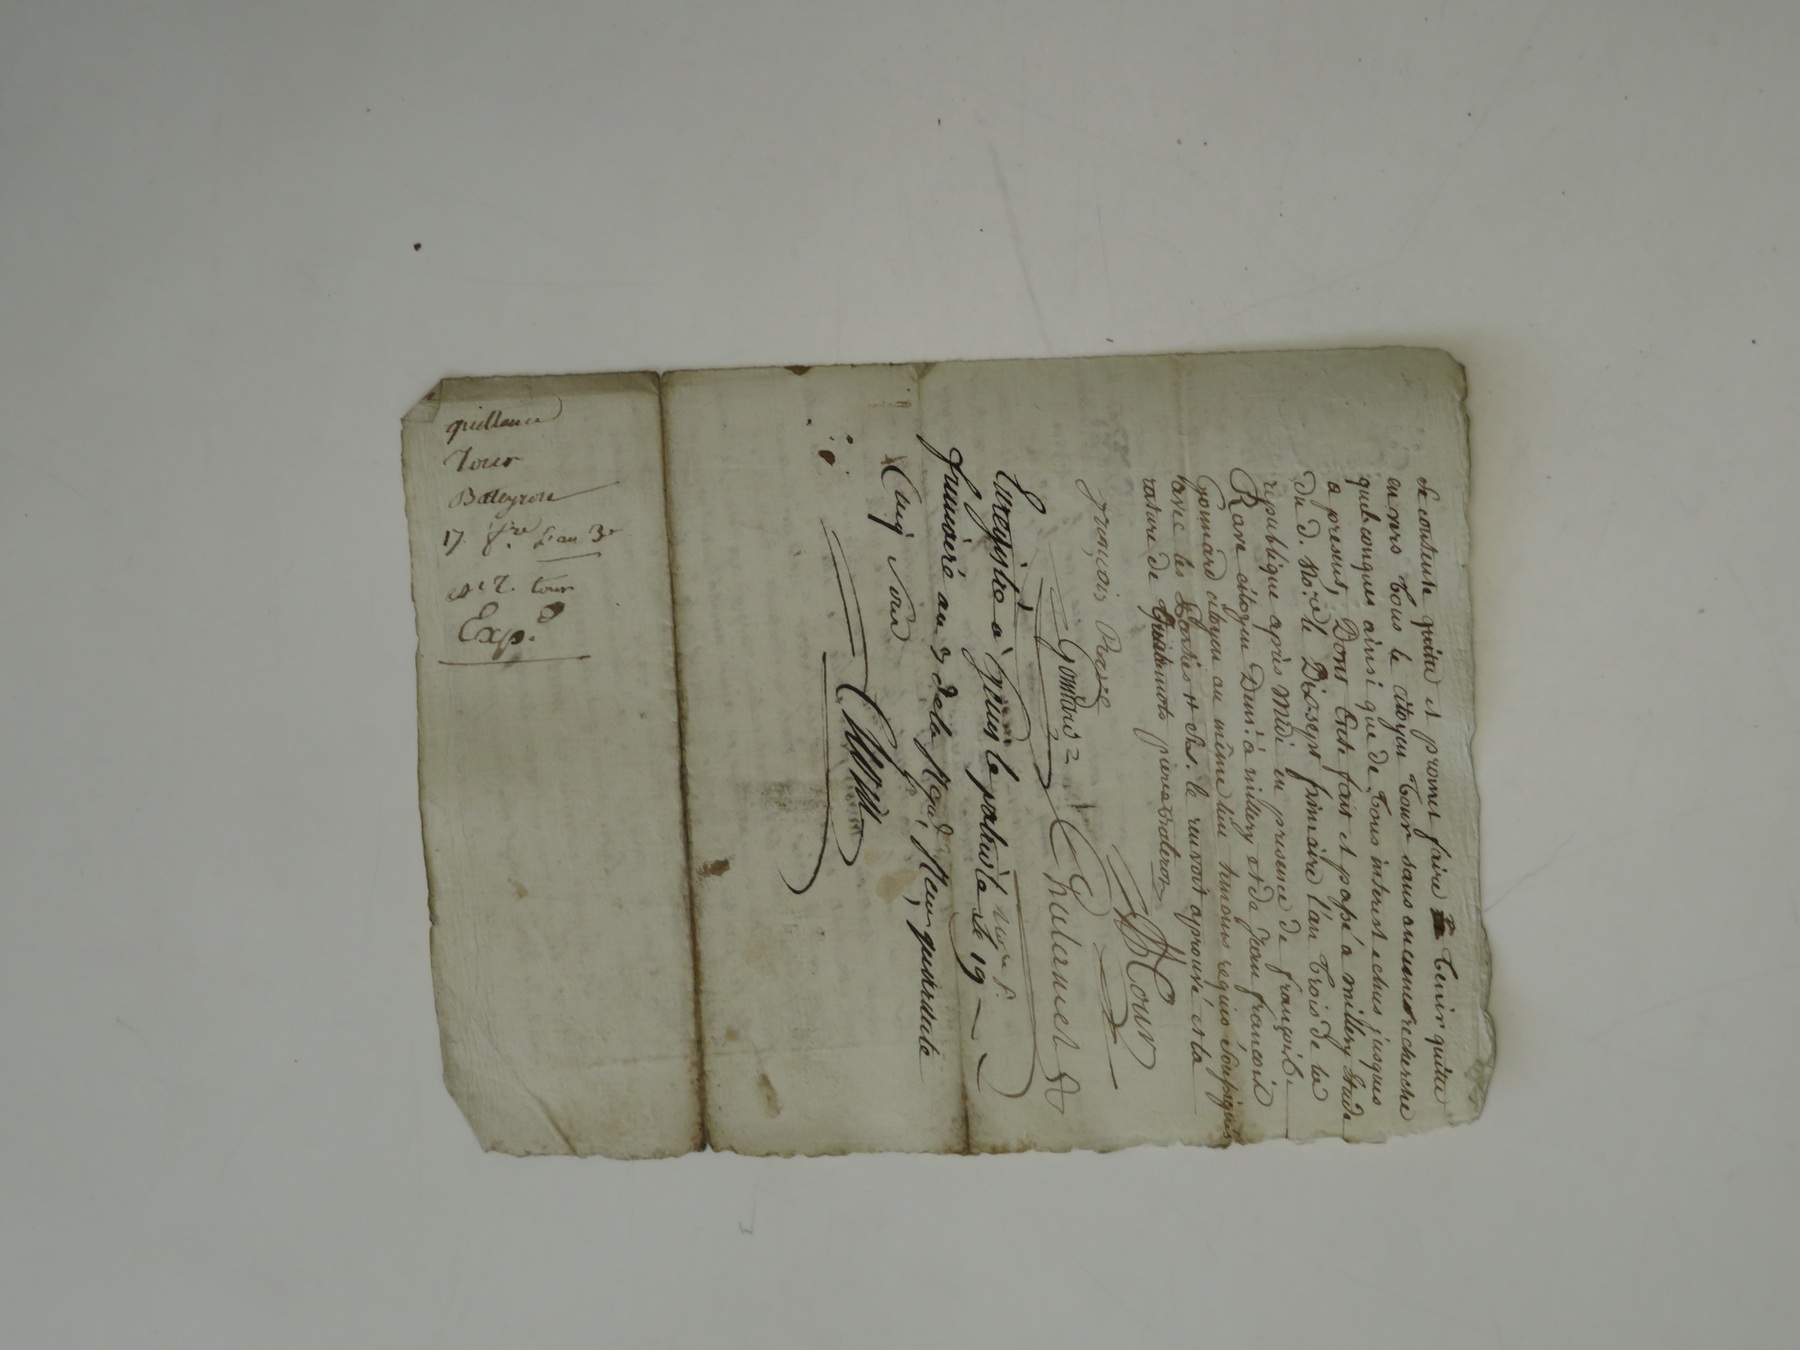 se contente quitte et promet faire tenir quitte
envers tous le citoyen Tour sans aucune recherche
quelconques ainsi que de tous interest echus jusques
a present, Dont acte fait et passé a millery Etude
du d. No.re le Dixsept frimaire l'an trois de la
republique après Midi en presence de françois
Rave citoyen Dud. a millery et de Jean francois
Gonnard citoyen au même lieu temoins requis soussignés
avec les parties et Sus. le renvoi aprouvé et la
rature de mots pierre bateron
françois Rave
Tour
Gonnard
Enregistré à le 19
frimaire an 3 de la Rep. Reçu quarante
Cinq sous
quittance
Tour
Bateyron
17 f.re L'an 3e
Tour
Exp.é